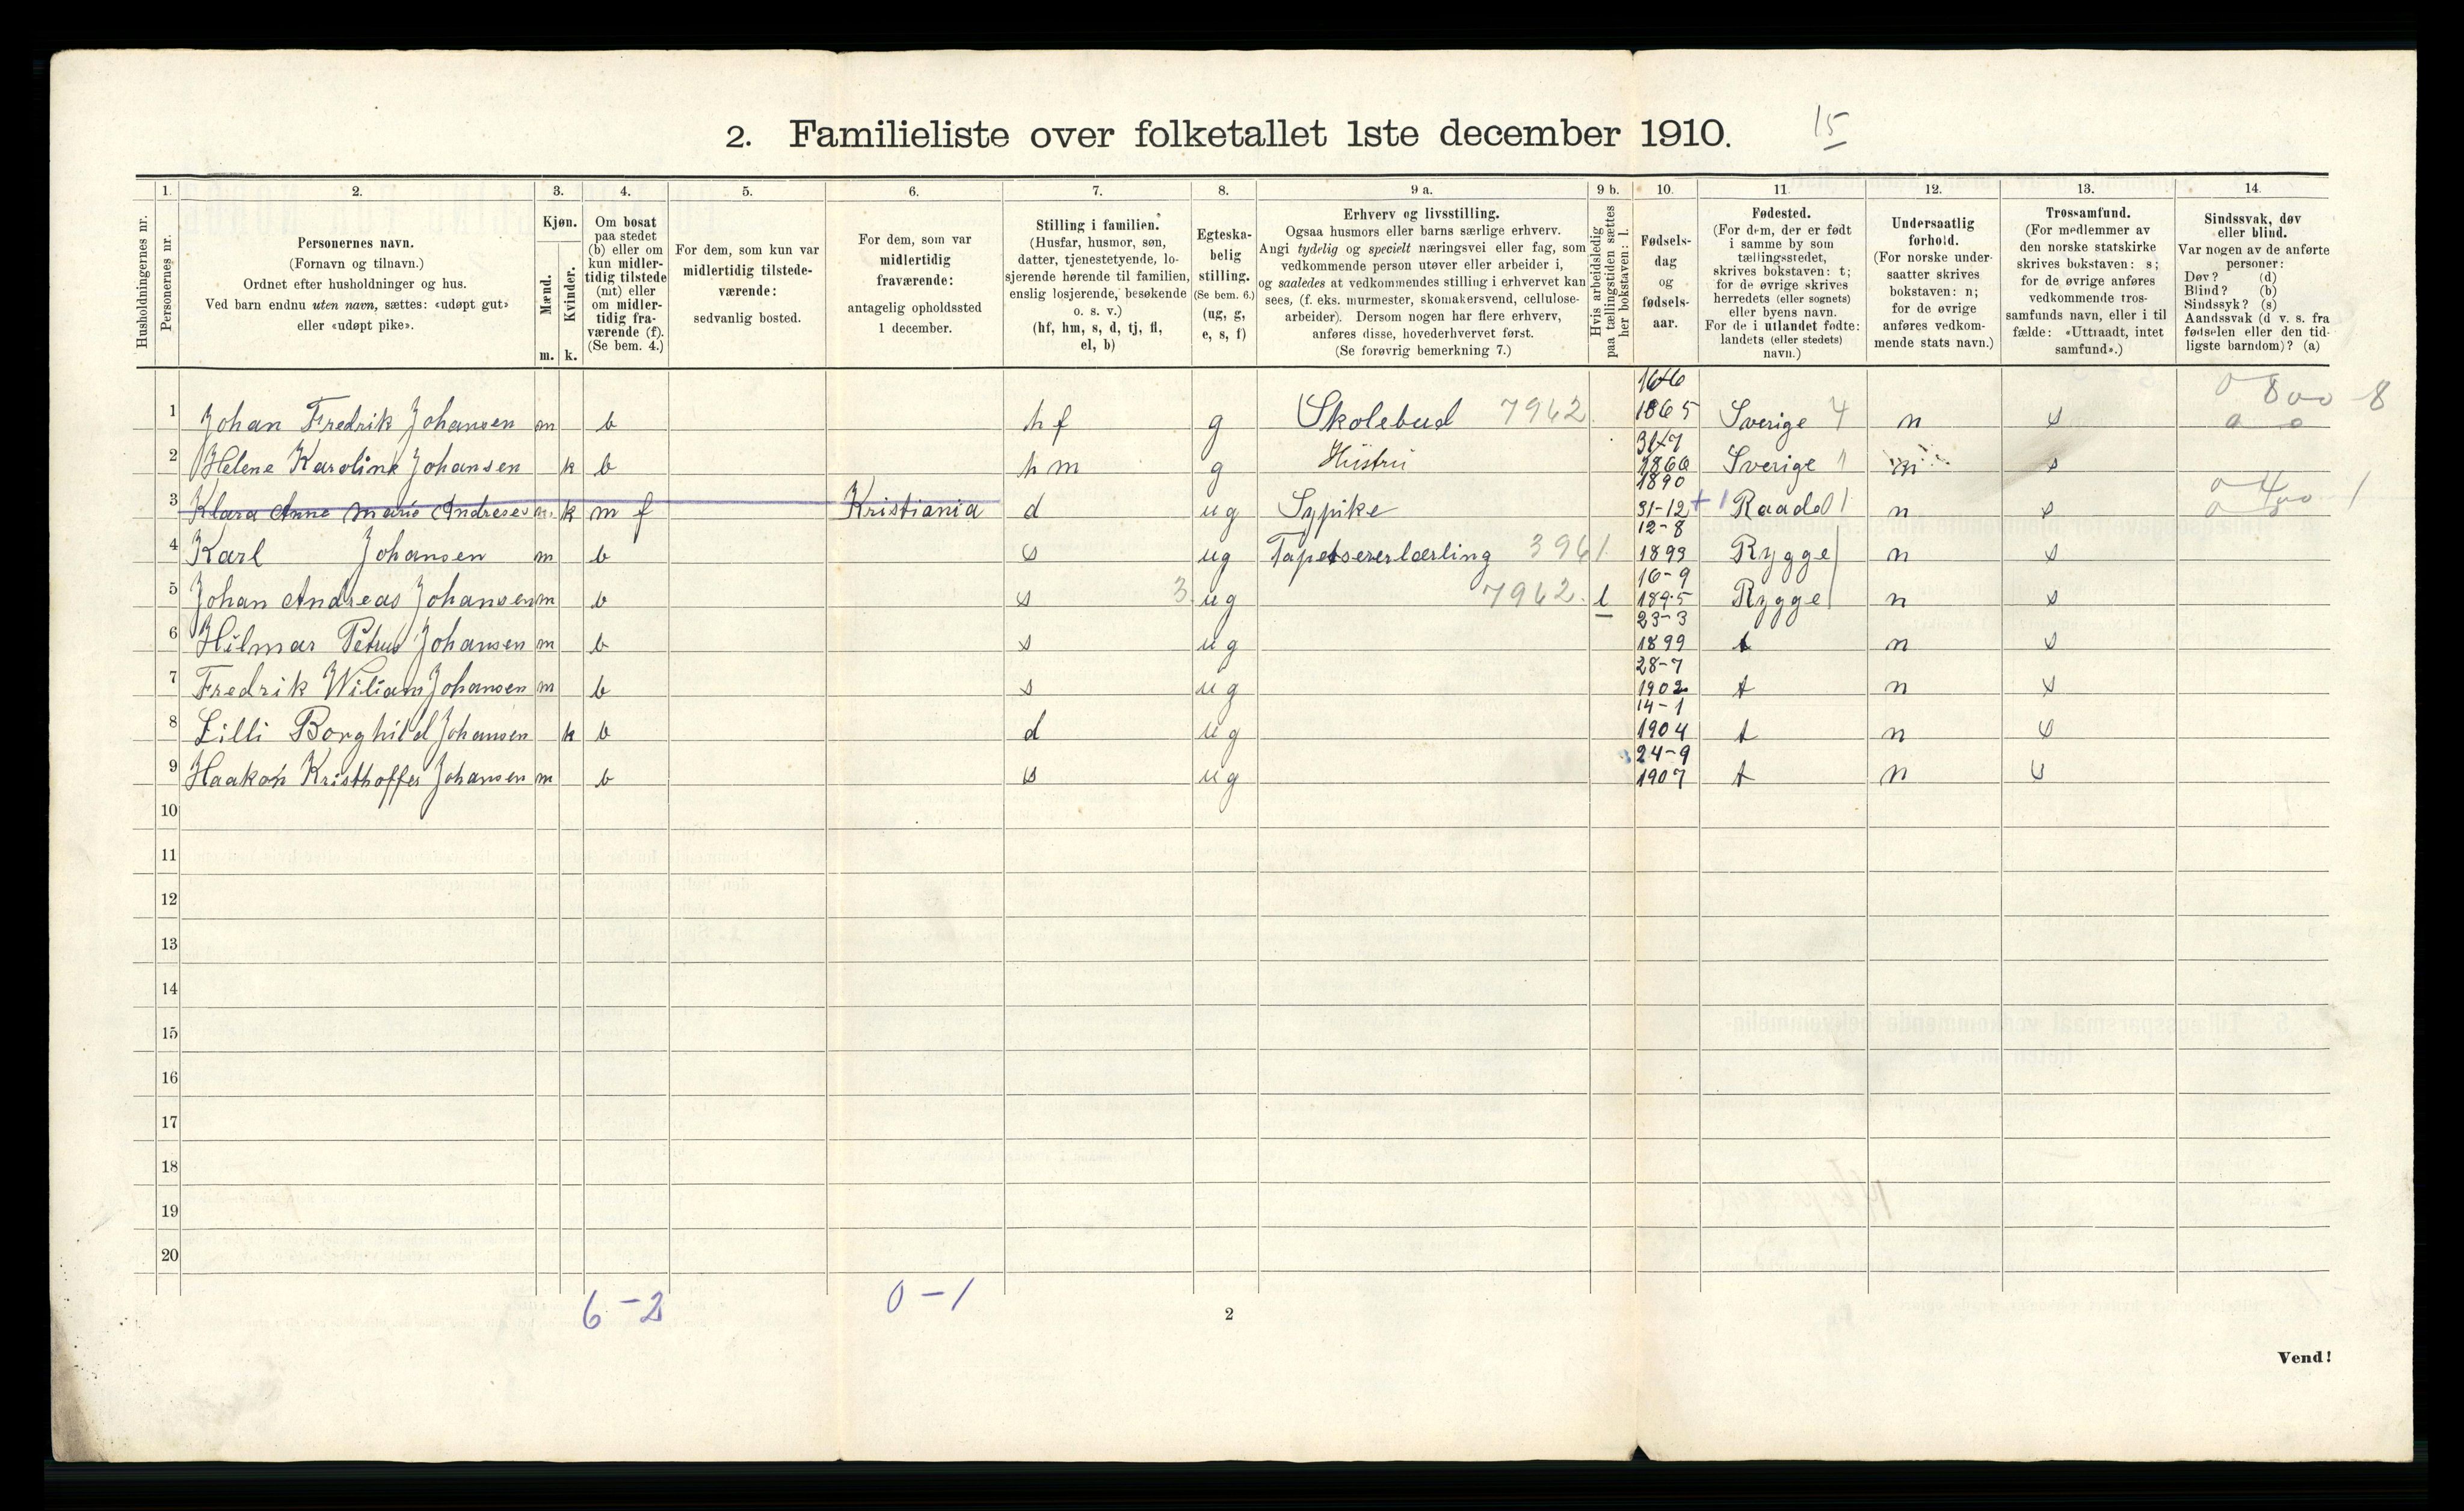 2. Familieliste over folketallet 1ste december 1910. 15
1. 2. 3. 4. 5. 6. 7. 8. 9 a. 9 b. 10. 11. 12. 13. 14.
Husholdningernes nr.
Personernes nr.
Personernes navn.
(Fornavn og tilnavn.)
Ordnet efter husholdninger og hus.
Ved barn endnu uten navn, sættes: «udøpt gut»
eller «udøpt pike».
Kjøn.
Mænd.
Kvinder.
m. k.
Om bosat
paa stedet
(b) eller om
kun midler-
tidig tilstede
(mt) eller
om midler-
tidig fra-
værende (f).
(Se bem. 4.)
For dem, som kun var
midlertidig tilstede-
værende:
sedvanlig bosted.
For dem, som var
midlertidig
fraværende:
antagelig opholdssted
1 december.
Stilling i familien.
(Husfar, husmor, søn,
datter, tjenestetyende, lo-
sjerende hørende til familien,
enslig losjerende, besøkende
o. s. v.)
(hf, hm, s, d, tj, fl,
el, b)
Egteska-
belig
stilling.
(Se bem. 6.)
(ug, g,
e, s, f)
Erhverv og livsstilling.
Ogsaa husmors eller barns særlige erhverv.
Angi tydelig og specielt næringsvei eller fag, som
vedkommende person utøver eller arbeider i,
og saaledes at vedkommendes stilling i erhvervet kan
sees, (f. eks. murmester, skomakersvend, cellulose-
arbeider). Dersom nogen har flere erhverv,
anføres disse, hovederhvervet først.
(Se forøvrig bemerkning 7.)
Hvis arbeidsledig
paa tællingstiden sættes
her bokstaven: l.
Fødsels-
dag
og
fødsels-
aar.
Fødested.
(For dem, der er født
i samme by som
tællingsstedet,
skrives bokstaven: t;
for de øvrige skrives
herredets (eller sognets)
eller byens navn.
For de i utlandet fødte:
landets (eller stedets)
navn.)
Undersaatlig
forhold.
(For norske under-
saatter skrives
bokstaven: n;
for de øvrige
anføres vedkom-
mende stats navn.)
Trossamfund.
(For medlemmer av
den norske statskirke
skrives bokstaven: s;
for de øvrige anføres
vedkommende tros-
samfunds navn, eller i til
fælde: «Uttraadt, intet
samfund».)
Sindssvak, døv
eller blind.
Var nogen av de anførte
personer:
Døv? (d)
Blind? (b)
Sindssyk? (s)
Aandssvak (d v. s. fra
fødselen eller den tid-
ligste barndom)? (a)
1 Johan Fredrik Johansen m b hf g Skolebud 7962 1865 Sverige n s
2 Helene Karoline Johansen k b hm g Hüstrü 31-7 Sverige s
3 Klara Anne Marie k m f Kristiania d ug Sypike 1890 31-12 Raade n s
4 Karl Johansen m b s ug Tapetsererlærling 12-8 1893 Rygge n s
5 Johan Andreas Johansen m b s ug 7962. l 16-9 1895 Rygge n s
6 Hilmar Petrus Johansen m b s ug 23-3 1899 t n s
7 Fredrik Wiliam Johansen m b s ug 28-7 1902 t n s
8 Lilli Borghild Johansen k b d ug 14-1 1904 t n s
9 Haakon Kristhoffer Johansen m b s ug 24-9 1907 t n s
10
11
12
13
14
15
16
17
18
19
20
6-2 0-1
2
Vend!